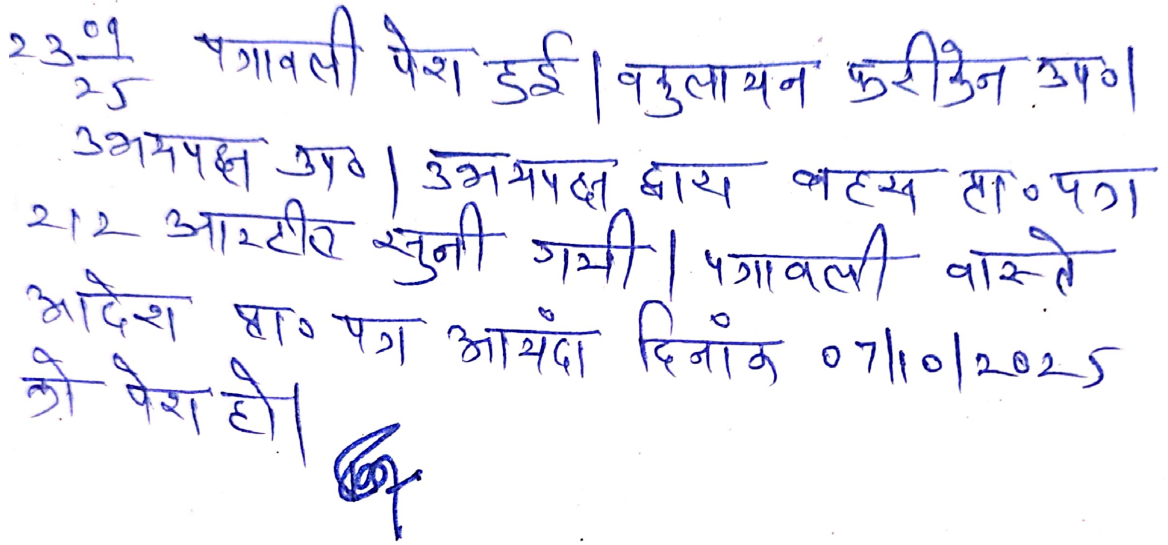 23 09/25 पत्रावली पेश हुई। वकुलायन फरीकेन उप०।
उभयपक्ष उप०। उभयपक्ष द्वारा बहस प्रा० पत्र
212 आरटीए सुनी गयी। पत्रावली वास्ते
आदेश प्रा० पत्र आयंदा दिनांक 07/10/2025
को पेश हो।